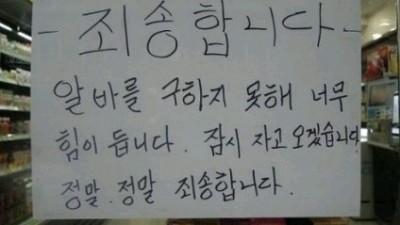 - 죄송합니다 -
알바를 구하지 못해 너무
힘이 듭니다. 잠시 자고 오겠습니다
정말. 정말 죄송합니다.